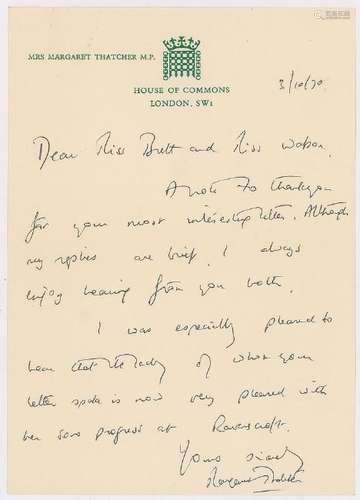 MRS MARGARET THATCHER M.P.
HOUSE OF COMMONS
LONDON, SW1
3/10/70
Dear Miss Brett and Miss Watson,
A note to thank you
for your most interesting letter. Although
my replies are brief, I always
enjoy hearing from you both.
I was especially pleased to
hear that the lady of whom your
letter spoke is now very pleased with
her sons progress at Ravenscroft.
Yours sincerely
Margaret Thatcher